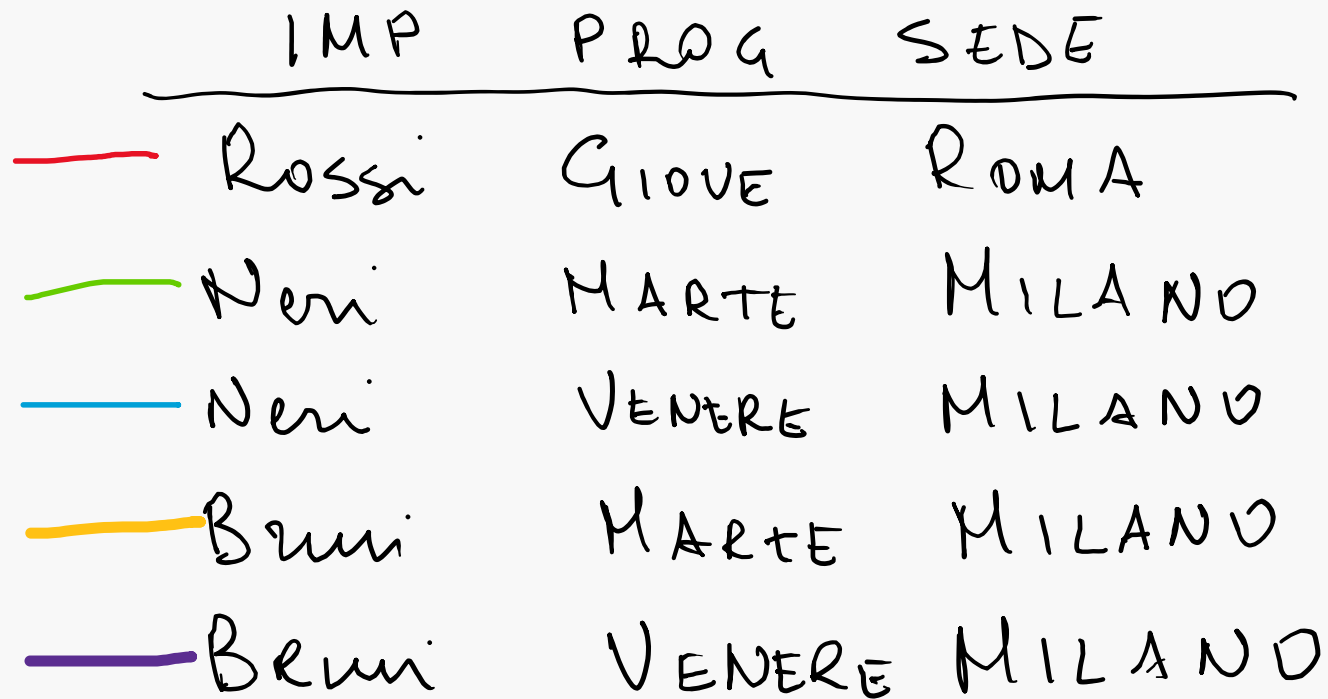 IMP PROG SEDE
Rossi GIOVE ROMA
Neri MARTE MILANO
Neri VENERE MILANO
Bruni MARTE MILANO
Bruni VENERE MILANO